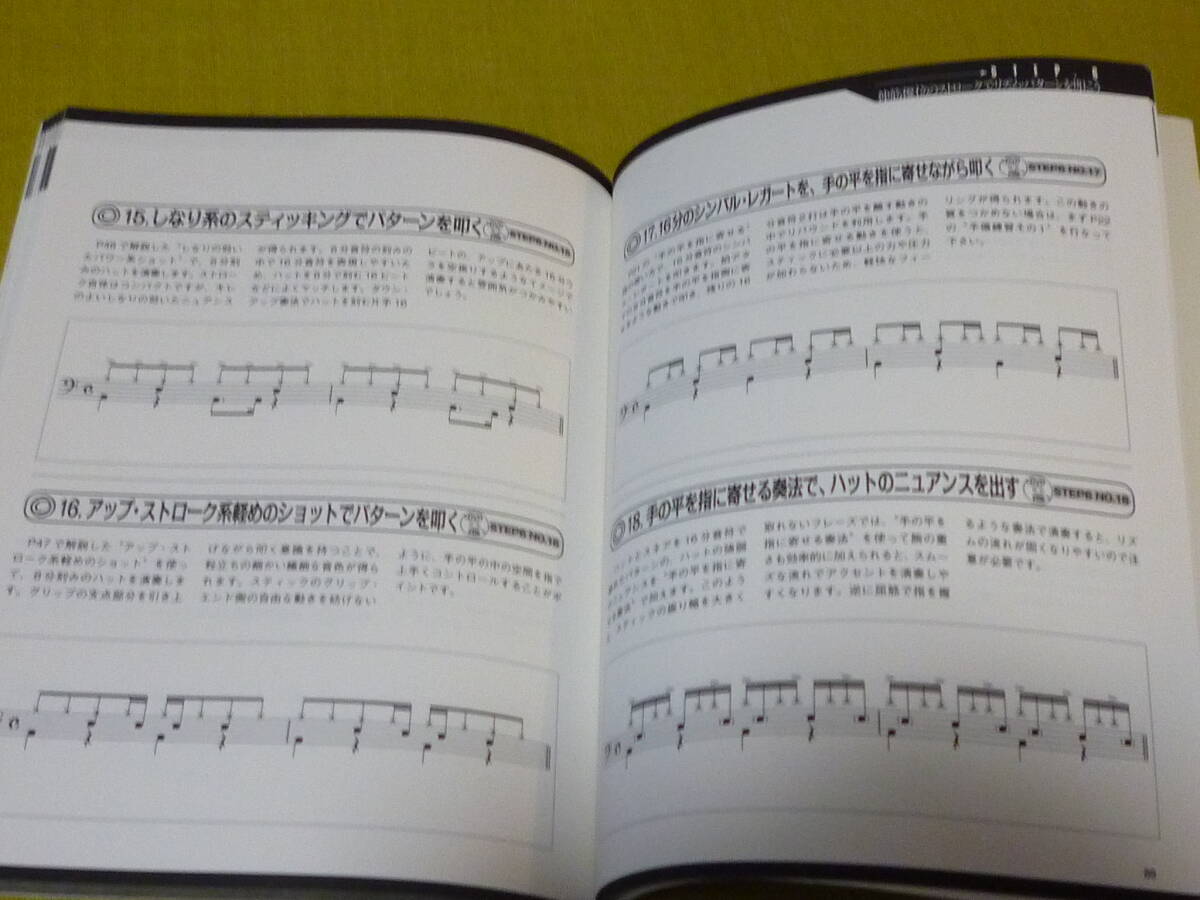 15.しなり系のスティッキングでパターンを叩く
STEP6.NO.15
P46で解説した"しなりの効い
たパワー系ショット"で、8分刻
みのハットを演奏します。ストロー
ク自体はコンパクトですが、キレ
のよいしなりの効いたニュアンス
が得られます。8分音符の刻みの
中で16分音符を表現しやすいた
め、ハットを8分で刻む16ビート
などによくマッチします。ダウン・
アップ奏法でハットを刻む片手16
ビートの、アップにあたる16分ウ
ラを空振りするようなイメージで
演奏すると雰囲気がつかみやすい
でしょう。
16.アップ・ストローク系軽めのショットでパターンを叩く
STEP6.NO.16
P47で解説した"アップ・スト
ローク系軽めのショット"を使っ
て、8分刻みのハットを演奏しま
す。グリップの支点部分を引き上
げながら叩く意識を持つことで、
粒立ちの細かい繊細な音色が得ら
れます。スティックのグリップ・
エンド側の自由な動きを妨げない
ように、手の平の中の空間を指で
上手くコントロールすることがポ
イントです。
STEP 6
17.16分のシンバル・レガートを、手の平を指に寄せながら叩く
STEP6.NO.17
分音符2打は手の平を離す動きの
中でリバウンドを利用します。手
の平を指に寄せる動きを使うと、
スティックに必要以上の力や圧力
が加わらないため、軽快なフィー
リングが得られます。この動きの
質をつかめない場合は、まずP22
の"準備練習その1"を行なって
下さい。
18.手の平を指に寄せる奏法で、ハットのニュアンスを出す
STEP6.NO.18
取れないフレーズでは、"手の平を
指に寄せる奏法"を使って腕の重
さも効率的に加えられると、スムー
ズな流れでアクセントを演奏しや
すくなります。逆に屈筋で指を握
るような奏法で演奏すると、リズ
ムの流れが固くなりやすいので注
意が必要です。
89